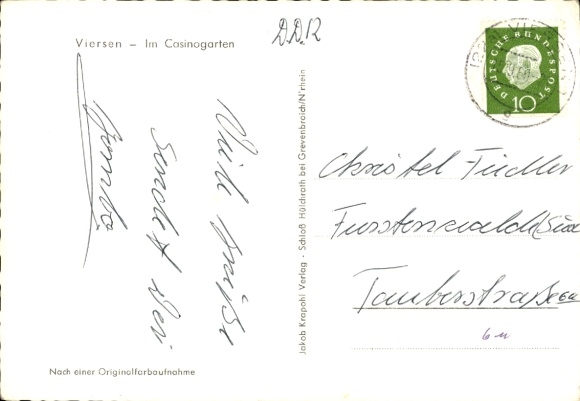 Viersen – Im Casinogarten
D.D.R
DEUTSCHE BUNDESPOST
10
Viele Grüße
sendet Dir
Jakob Krapohl Verlag - Schloß Hülchrath bei Grevenbroich/N'rhein
Christel Fiedler
Fürstenwalde/Süd
Tauberstraße 6a
Nach einer Originalfarbaufnahme